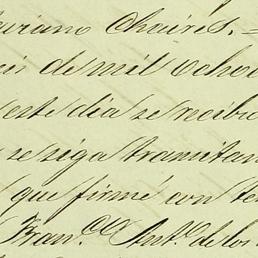 uriano Chaires. =
eis de mil ochoc
este dia se recibio
se siga tramitan
que firmé con te
Fran.co Ant.o de los